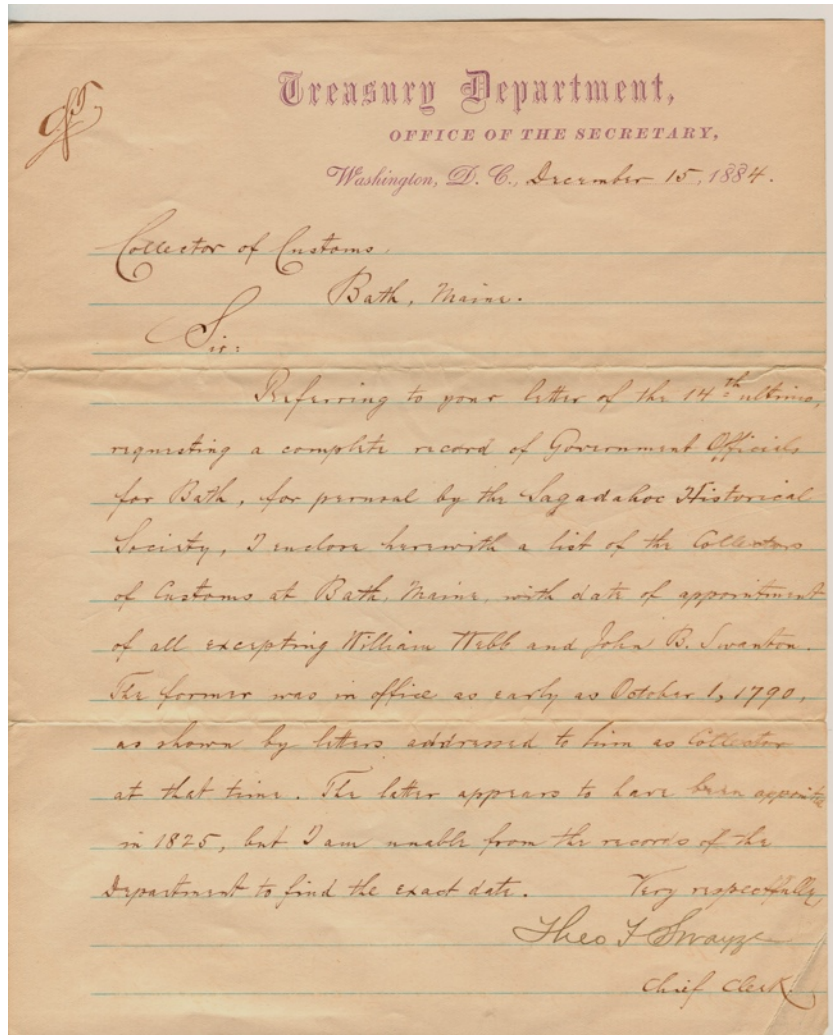 Treasury Department,
OFFICE OF THE SECRETARY,
Washington, D. C., December 15, 1884.
Collector of Customs,
Bath, Maine.
Sir:
Referring to your letter of the 14th ultimo,
requesting a complete record of Government Officials
for Bath, for perusal by the Sagadahoc Historical
Society, I enclose herewith a list of the Collectors
of Customs at Bath, Maine, with date of appointment
of all excepting William Webb and John B. Swanton.
The former was in office as early as October 1, 1790,
as shown by letters addressed to him as Collector
at that time. The latter appears to have been appointe
in 1825, but I am unable from the records of the
Department to find the exact date. Very respectfully
Theo F Swayze
Chief Clerk.